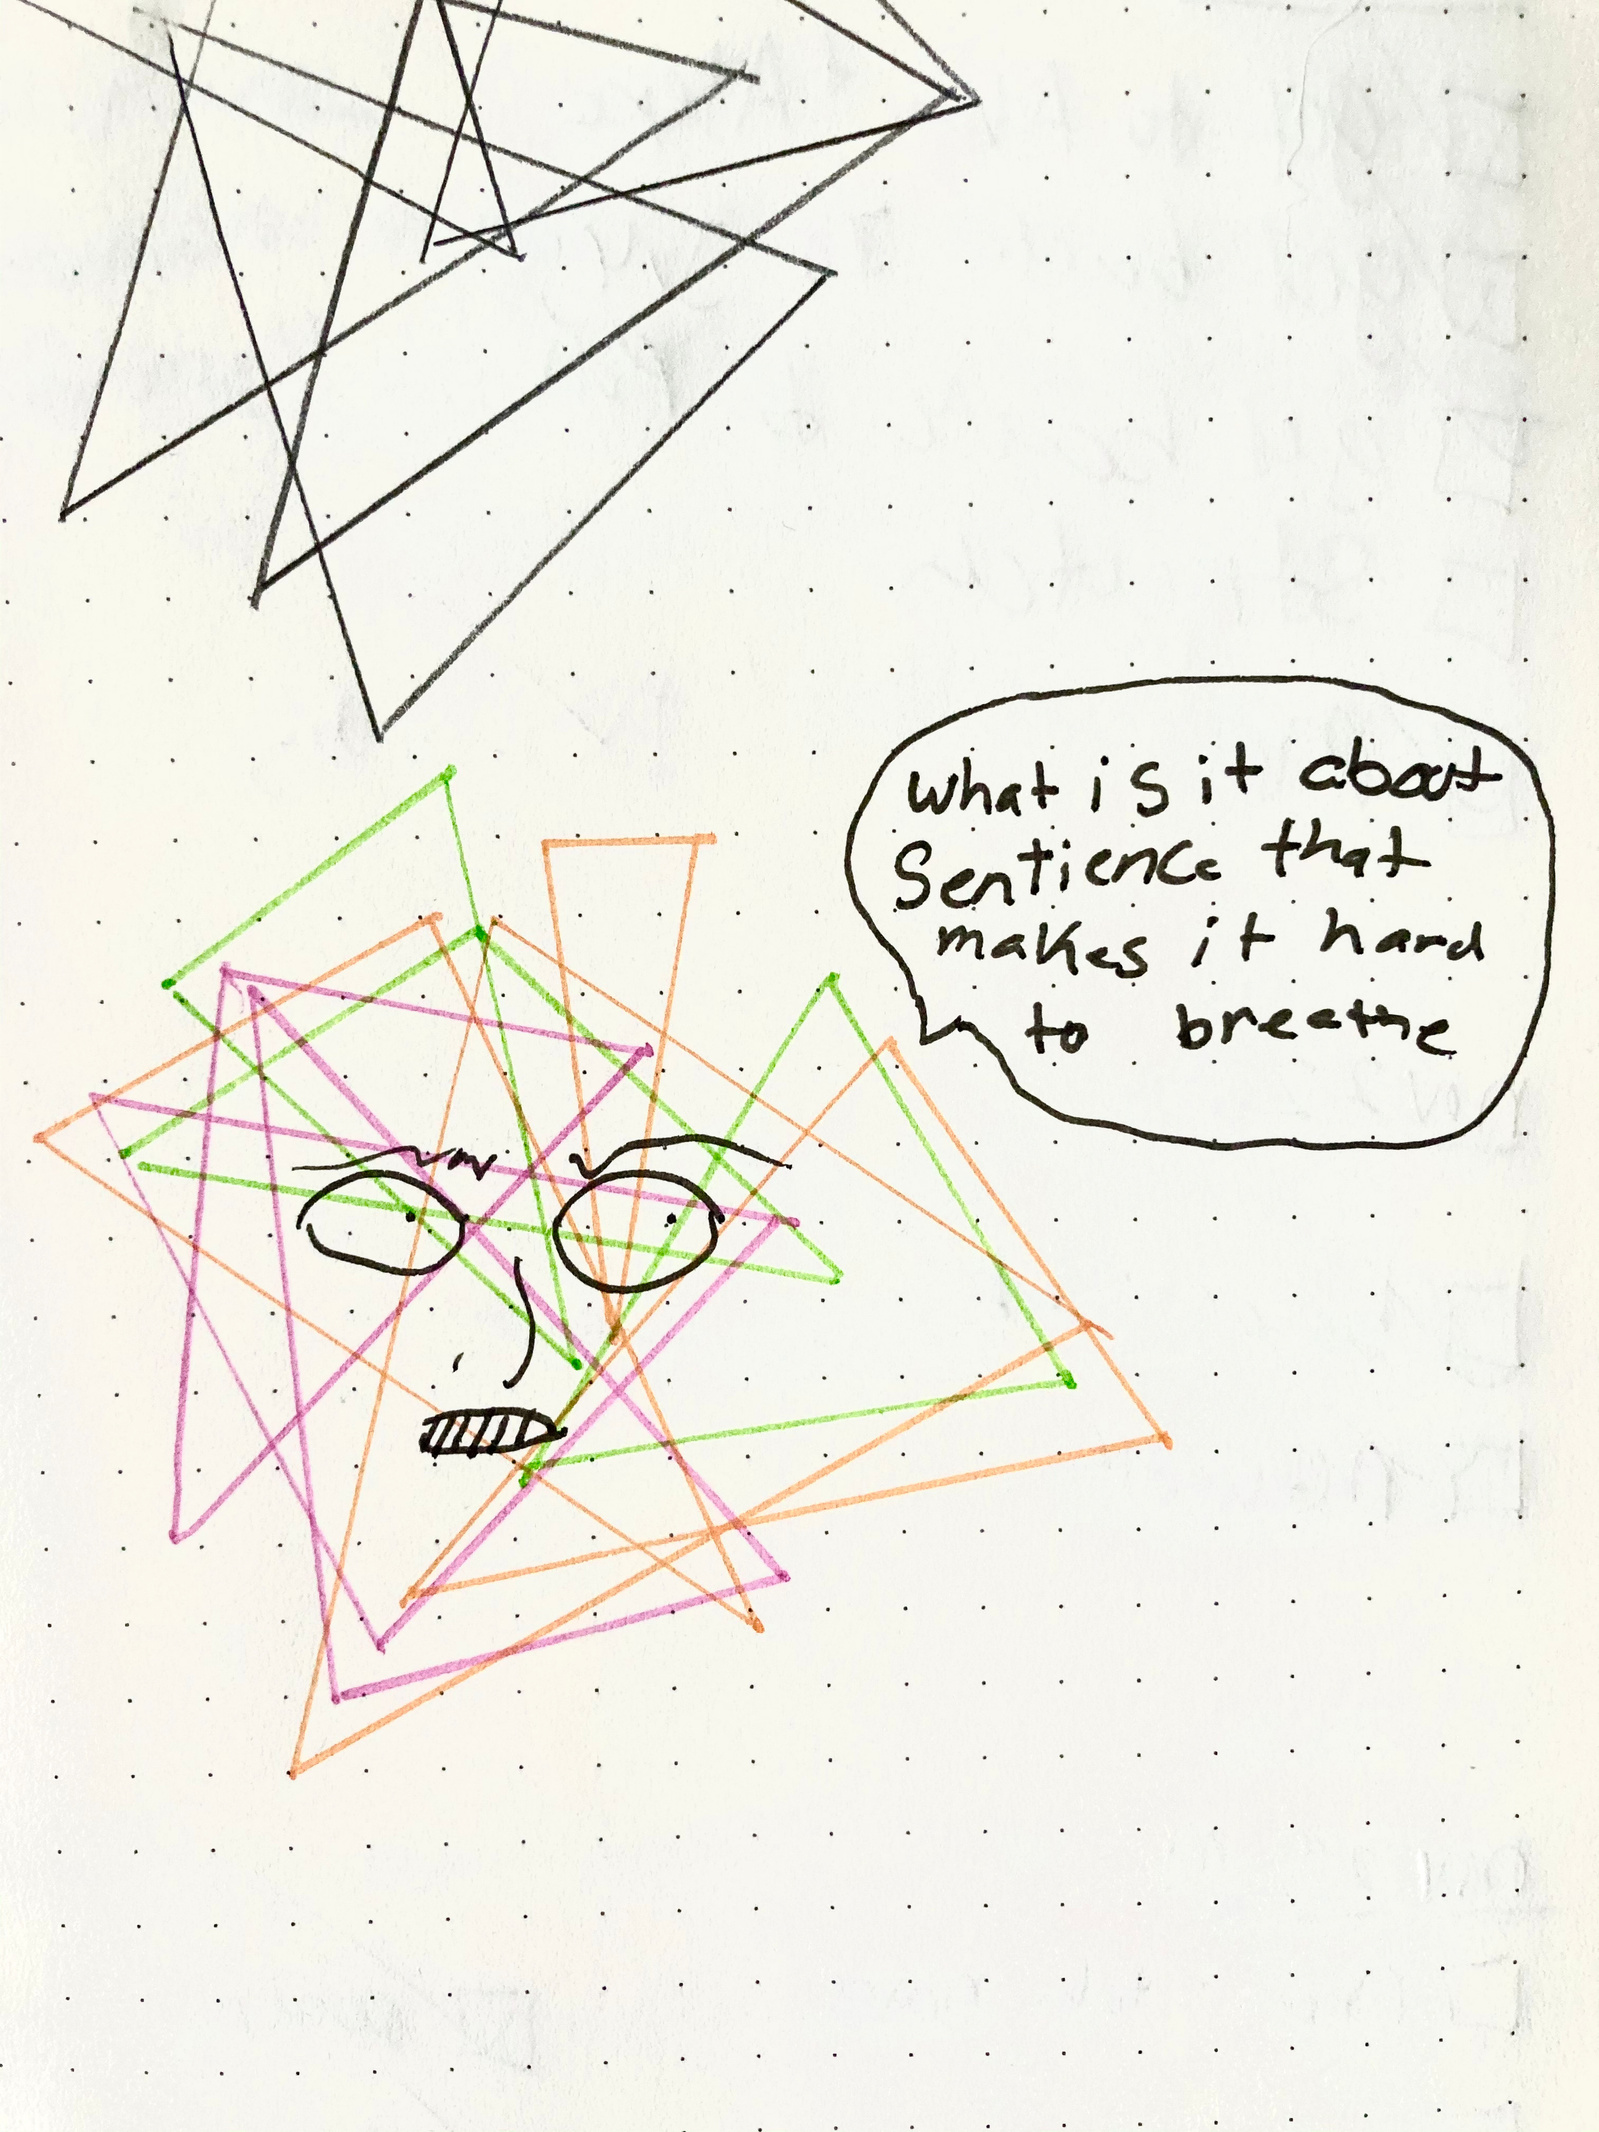 What is it about
Sentience that
makes it hard
to breathe